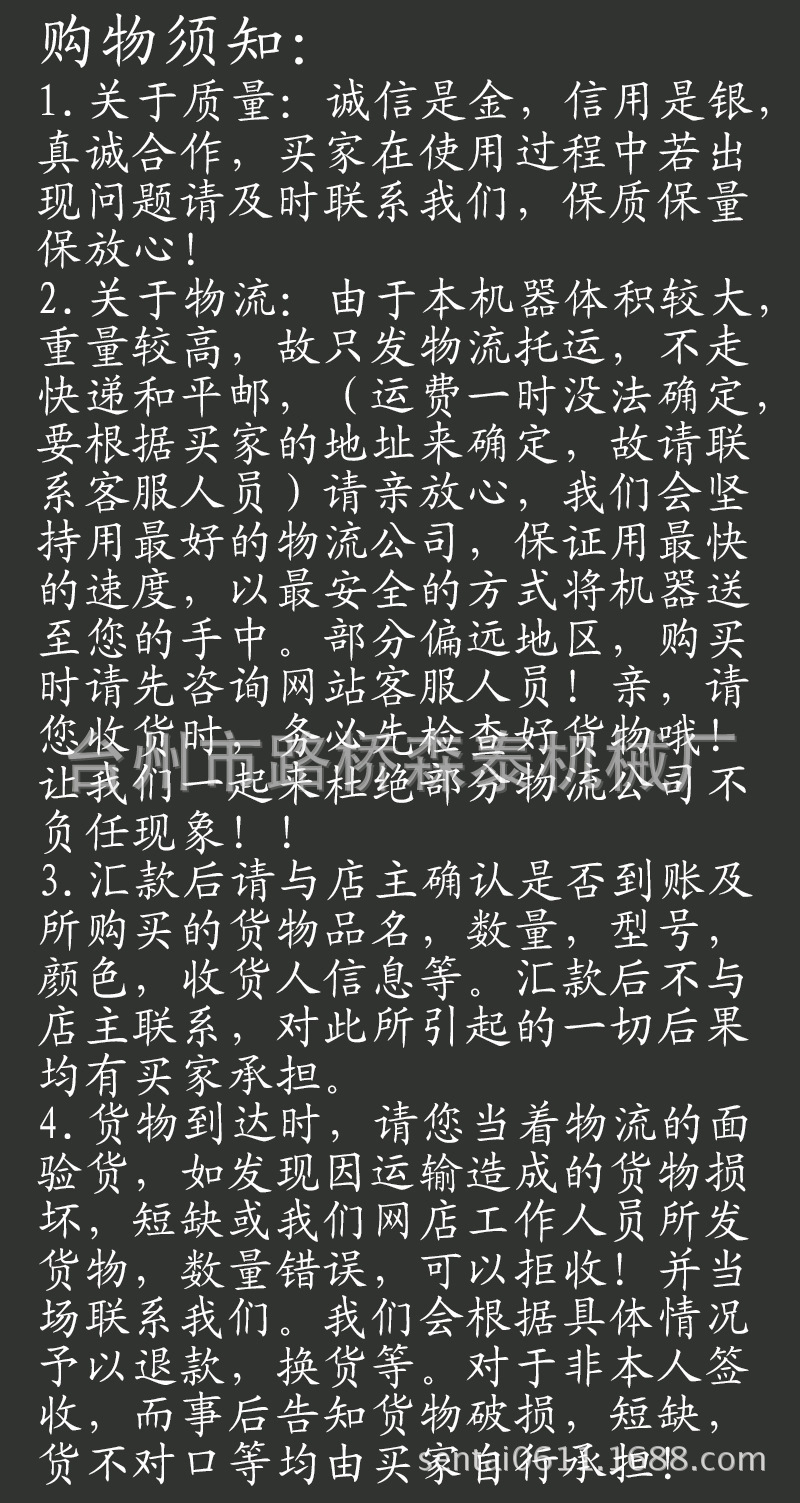 购物须知:
1.关于质量：诚信是金，信用是银，
真诚合作，买家在使用过程中若出
现问题请及时联系我们，保质保量
保放心！
2.关于物流：由于本机器体积较大，
重量较高，故只发物流托运，不走
快递和平邮，（运费一时没法确定，
要根据买家的地址来确定，故请联
系客服人员）请亲放心，我们会坚
持用最好的物流公司，保证用最快
的速度，以最安全的方式将机器送
至您的手中。部分偏远地区，购买
时请先咨询网站客服人员！亲，请
您收货时，务必先检查好货物哦！
台州市路桥森泰机械厂
让我们一起来杜绝部分物流公司不
负任现象！！
3.汇款后请与店主确认是否到账及
所购买的货物品名，数量，型号，
颜色，收货人信息等。汇款后不与
店主联系，对此所引起的一切后果
均有买家承担。
4.货物到达时，请您当着物流的面
验货，如发现因运输造成的货物损
坏，短缺或我们网店工作人员所发
货物，数量错误，可以拒收！并当
场联系我们。我们会根据具体情况
予以退款，换货等。对于非本人签
收，而事后告知货物破损，短缺，
货不对口等均由买家自行承担！
sentai0611.1688.com